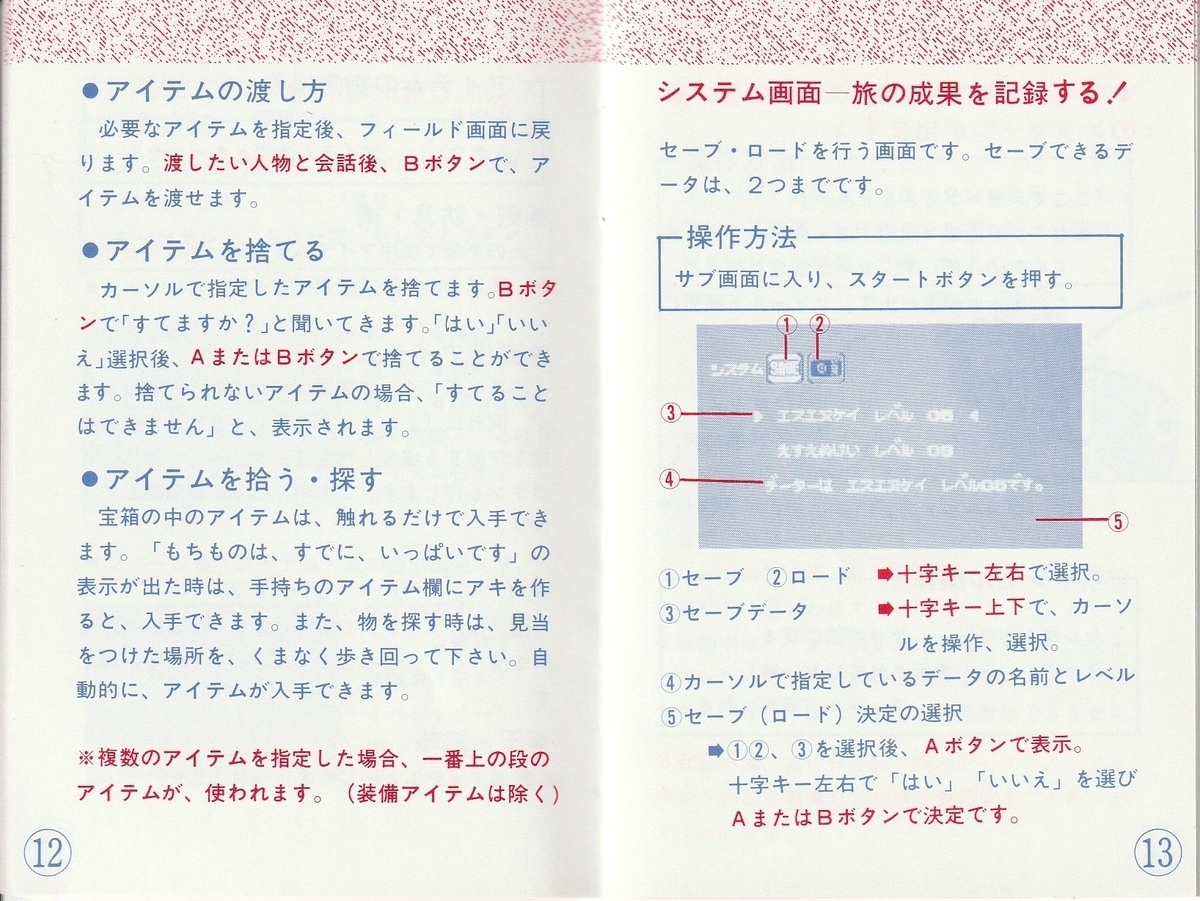 ●アイテムの渡し方
必要なアイテムを指定後、フィールド画面に戻
ります。渡したい人物と会話後、Bボタンで、ア
イテムを渡せます。
●アイテムを捨てる
カーソルで指定したアイテムを捨てます。Bボタ
ンで「すてますか？」と聞いてきます。「はい」「いい
え」選択後、AまたはBボタンで捨てることができ
ます。捨てられないアイテムの場合、「すてること
はできません」と、表示されます。
●アイテムを拾う・探す
宝箱の中のアイテムは、触れるだけで入手でき
ます。「もちものは、すでに、いっぱいです」の
表示が出た時は、手持ちのアイテム欄にアキを作
ると、入手できます。また、物を探す時は、見当
をつけた場所を、くまなく歩き回って下さい。自
動的に、アイテムが入手できます。
※複数のアイテムを指定した場合、一番上の段の
アイテムが、使われます。（装備アイテムは除く）
⑫
システム画面―旅の成果を記録する！
セーブ・ロードを行う画面です。セーブできるデ
ータは、2つまでです。
操作方法
サブ画面に入り、スタートボタンを押す。
① ②
システム SAVE
③ エスエヌケイ レベル 05
えすえぬけい レベル 09
④ データーは エスエヌケイ レベル05です。
⑤
①セーブ ②ロード ➡十字キー左右で選択。
③セーブデータ ➡十字キー上下で、カーソ
ルを操作、選択。
④カーソルで指定しているデータの名前とレベル
⑤セーブ（ロード）決定の選択
➡①②、③を選択後、Aボタンで表示。
十字キー左右で「はい」「いいえ」を選び
AまたはBボタンで決定です。
⑬